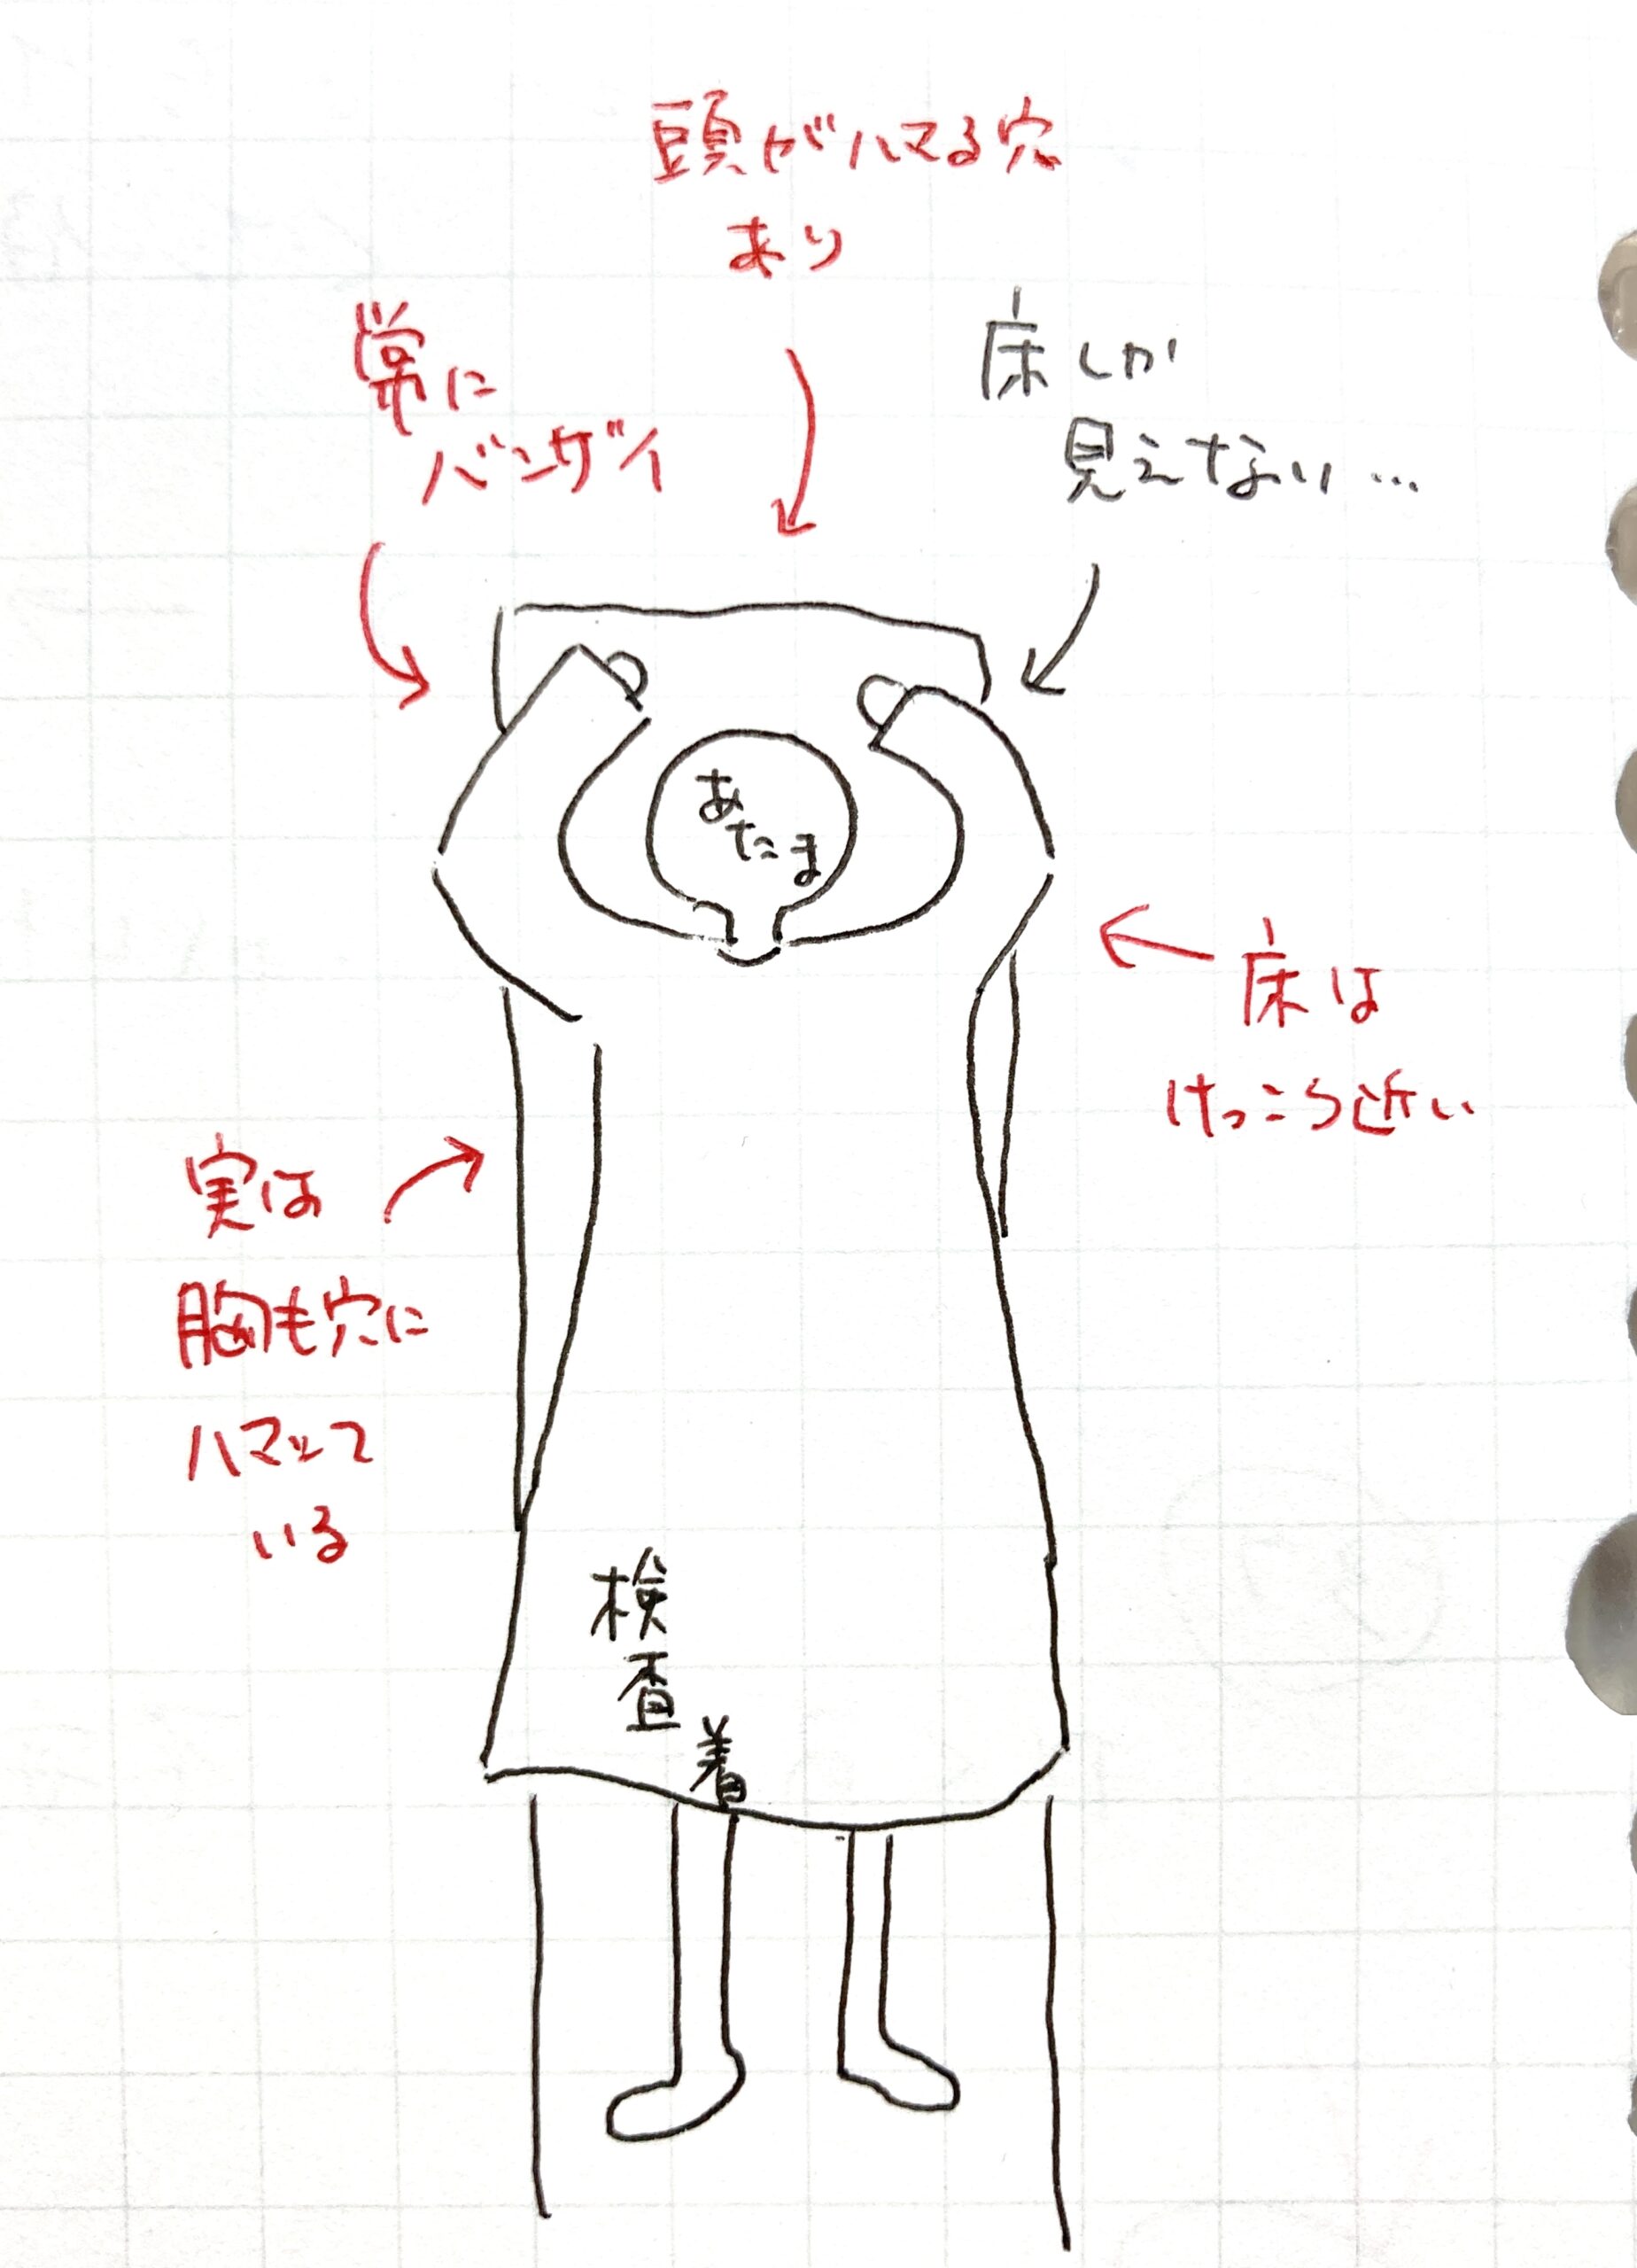 頭がハマる穴
あり
常に
バンザイ
床しか
見えない…
あたま
床は
けっこう近い
実は
胸も穴に
ハマッて
いる
検査着